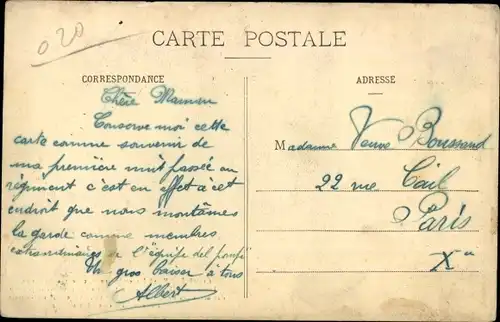 020
CARTE POSTALE
CORRESPONDANCE
Chère Maman
Conserve moi cette
carte comme souvenir de
ma première nuit passée au
régiment c'est en effet à cet
endroit que nous montâmes
la garde comme membres
extraordinaires de l'équipe del pompe
Un gros baiser à tous
Albert
ADRESSE
Madame Veuve Boussand
22 rue Cail
Paris
Xe